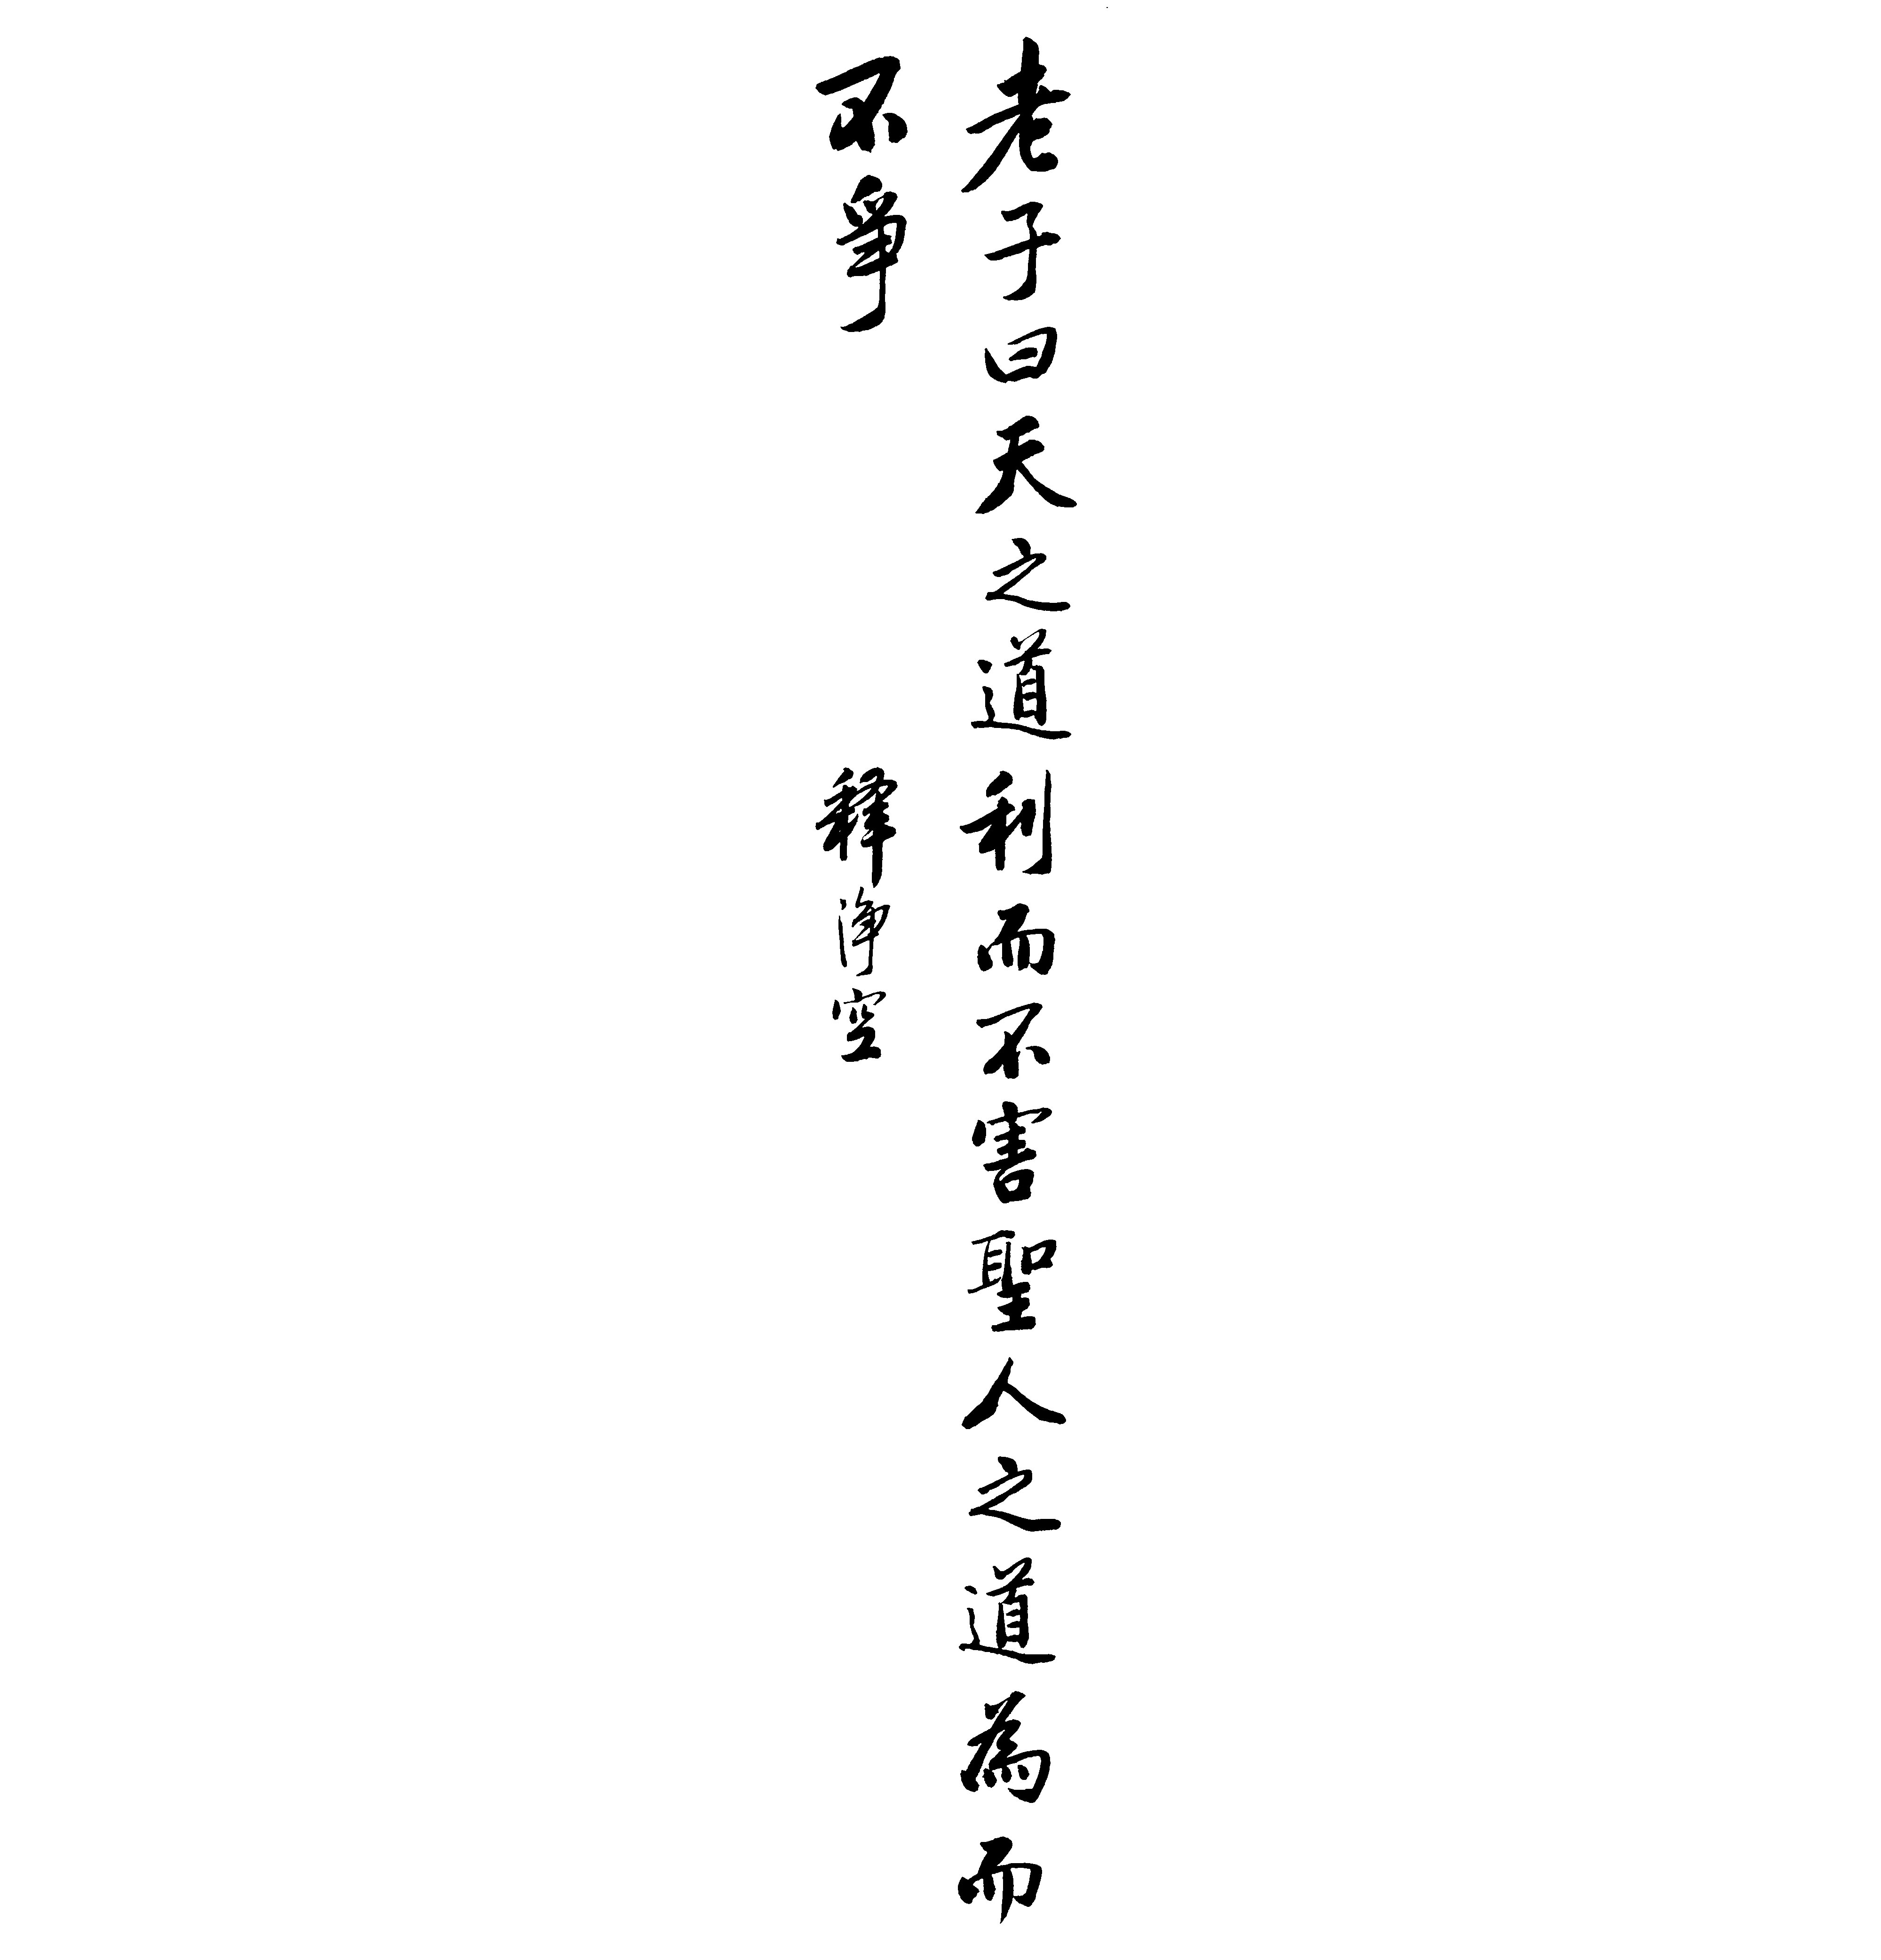 老子曰天之道利而不害聖人之道為而
不爭
釋淨空